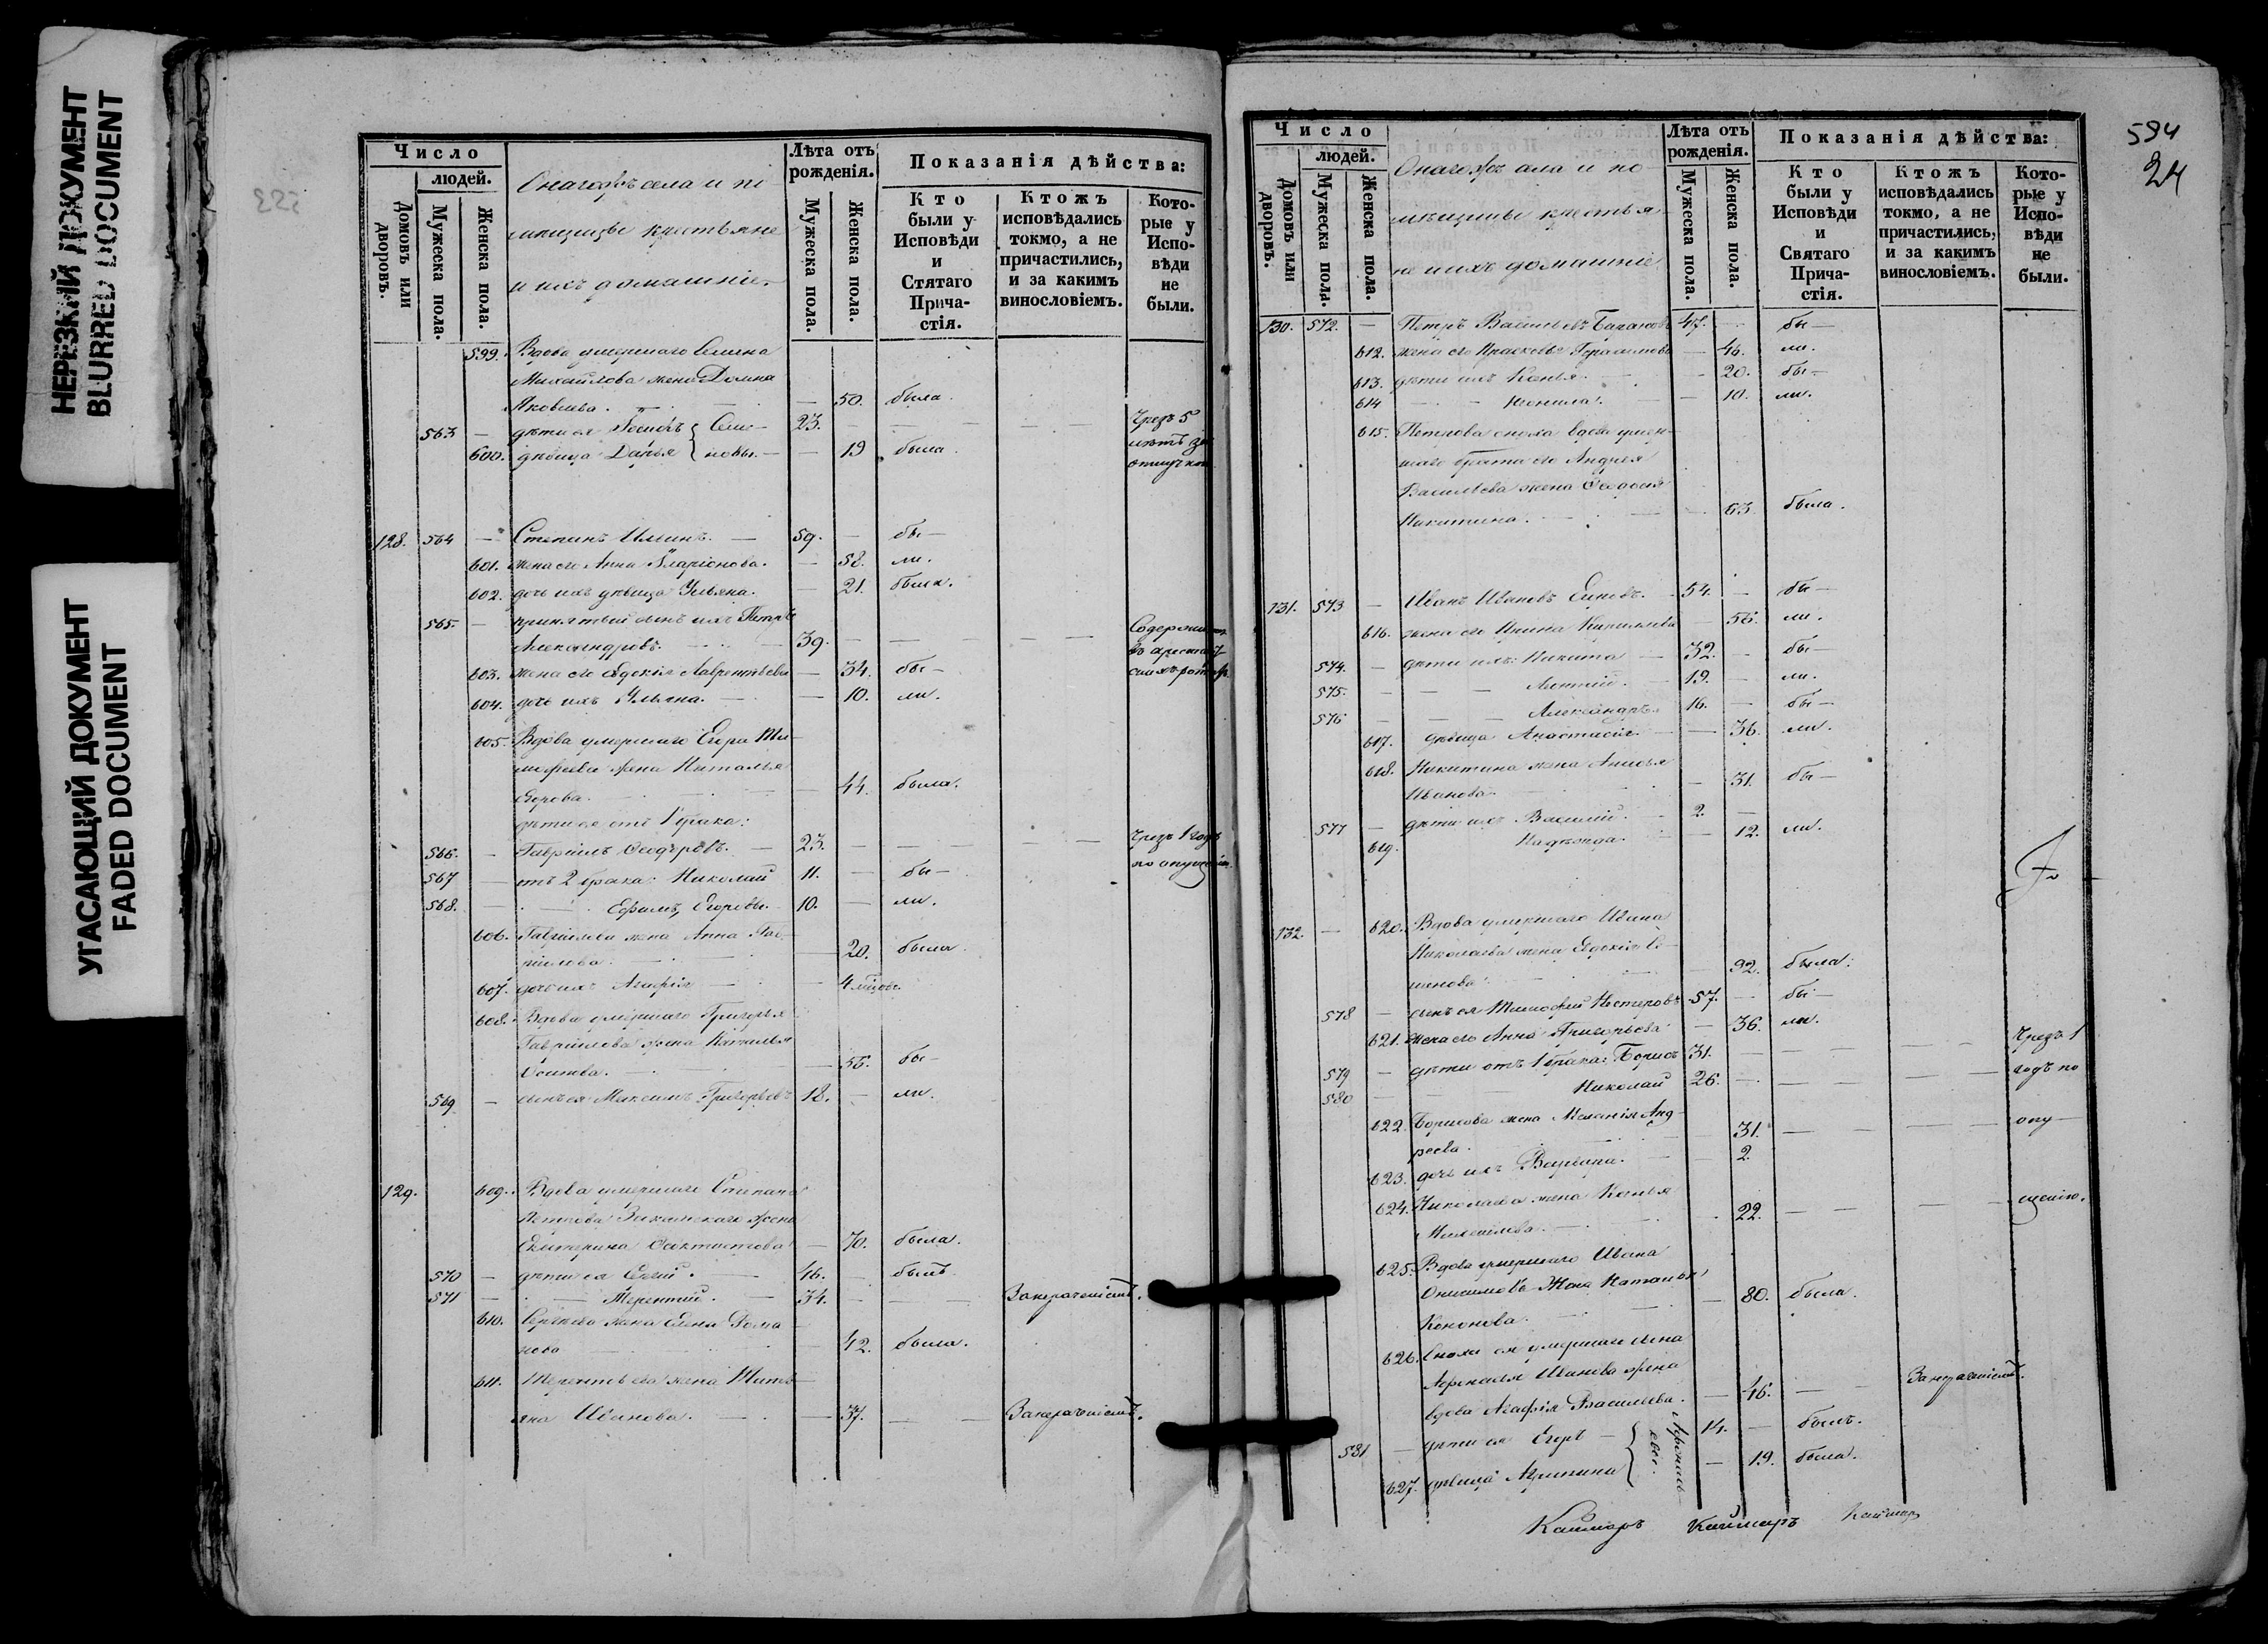 НЕРЕЗКИЙ ДОКУМЕНТ
BLURRED DOCUMENT
УГАСАЮЩИЙ ДОКУМЕНТ
FADED DOCUMENT
Число
людей.
Домовъ или дворовъ.
Мужеска пола.
Женска пола.
Онагожъ села и по-
мѣщицы крестьяне
и ихъ домашніе.
Лѣта отъ рожденія.
Мужеска пола.
Женска пола.
Показанія дѣйства:
Кто были у Исповѣди и Стятаго Прича-стія.
Ктожъ исповѣдались токмо, а не причастились, и за какимъ винословіемъ.
Кото-рые у Испо-вѣди не были.
599. Вдова умершаго Семена
Михайлова жена Домна
Яковлева. — 50. была.
563 — дѣти ея 23. — Чрезъ 5
600. дѣвица Дарья — 19 была. лѣтъ за
отлучкою
128. 564 — Степанъ Ильинъ. — 59. — бы—
601. жена его Анна Иларіонова. — 58. ли.
602. дочь ихъ дѣвица Ульяна. — 21. была.
565. — принятый сынъ ихъ Петръ
Александровъ. — 39. — Содержится
въ арестант-
603. жена его Евдокія Лаврентьева — 34. бы—
604. дочь ихъ Ульяна. — 10. ли.
605. Вдова умершаго Егора Ти-
мофеева жена Наталья
Егорова. — 44. была.
дѣти ея отъ 1 брака:
566. — Гавріилъ Ѳедоровъ. — 23. — Чрезъ 1 годъ
567 — отъ 2 брака: Николай 11. — бы— по опущенію
568. — Ефимъ, Егоровы. 10. — ли.
606. Гавріилова жена Анна Гав-
ріилова. — 20. была.
607. дочь ихъ Агафія — 4 мѣсяц.
608. Вдова умершаго Григорья
Гавріилова жена Наталья
Осипова. — 55. бы—
569 — сынъ ея Максимъ Григорьевъ 18. — ли.
129. 609. Вдова умершаго Степана
Петрова жена
Екатерина Ѳеоктистова — 70. была.
570 — дѣти ея Сергій. — 46. — былъ
571 — Терентій. — 34. — Закрачніемъ.
610. Сергѣева жена Елена Рома-
нова — 42. была.
611. Терентьева жена Татья-
яна Иванова. — 37. — Закрачніемъ.
594
24
Число
людей.
Домовъ или дворовъ.
Мужеска пола.
Женска пола.
Онагожъ села и по-
мѣщицы крестья-
не и ихъ домашніе.
Лѣта отъ рожденія.
Мужеска пола.
Женска пола.
Показанія дѣйства:
Кто были у Исповѣди и Святаго Прича-стія.
Ктожъ исповѣдались токмо, а не причастились, и за какимъ винословіемъ.
Кото-рые у Испо-вѣди не были.
130. 572. — Петръ Васильевъ 47. — бы—
612. жена его Прасковья Герасимова — 46. ли.
613. дѣти ихъ Ксенья — 20. бы—
614 — 10. ли.
615. Петрова сноха вдова умер-
шаго брата его Андрея
Васильева жена Ѳеодосія
Никитина. — 63. была.
131. 573 — Иванъ Ивановъ 54. — бы—
616. жена его Ирина Кирильева — 56. ли.
574. — дѣти ихъ: Никита — 32. — бы—
575. — 19. — ли.
576 — Александръ. 16. — бы—
617. дѣвица Анастасія. — 36. ли.
618. Никитина жена Анисья
Иванова. — 31. бы—
577 — дѣти ихъ Василій. 2. —
619. Надежда. — 12. ли.
132. — 620. Вдова умершаго Ивана
Николаева жена Евдокія Се-
менова. — 92. была.
578 — сынъ ея Тимофей Нестеровъ 57. — бы—
621. жена его Анна Григорьева — 36. ли.
579 — дѣти отъ 1 брака: Борисъ 31. — Чрезъ 1
580 — Николай 26. — годъ по
622. Борисова жена Меланія Анд-
реева. — 31. — опу-
623. дочь ихъ Варвара. — 2.
624. Николаева жена Ксенья
Михайлова. — 22. — щенію.
625. Вдова умершаго Ивана
Онисимова жена Наталья
Кононова. — 80. была.
626. Сноха ея умершаго сына
Афанасья Иванова жена
вдова Агафія Васильева. — 46. — Закрачніемъ.
581 — дѣти ея Егоръ — 14. — былъ.
627. дѣвица Агрипина — 19. была.
Афанасьевы.